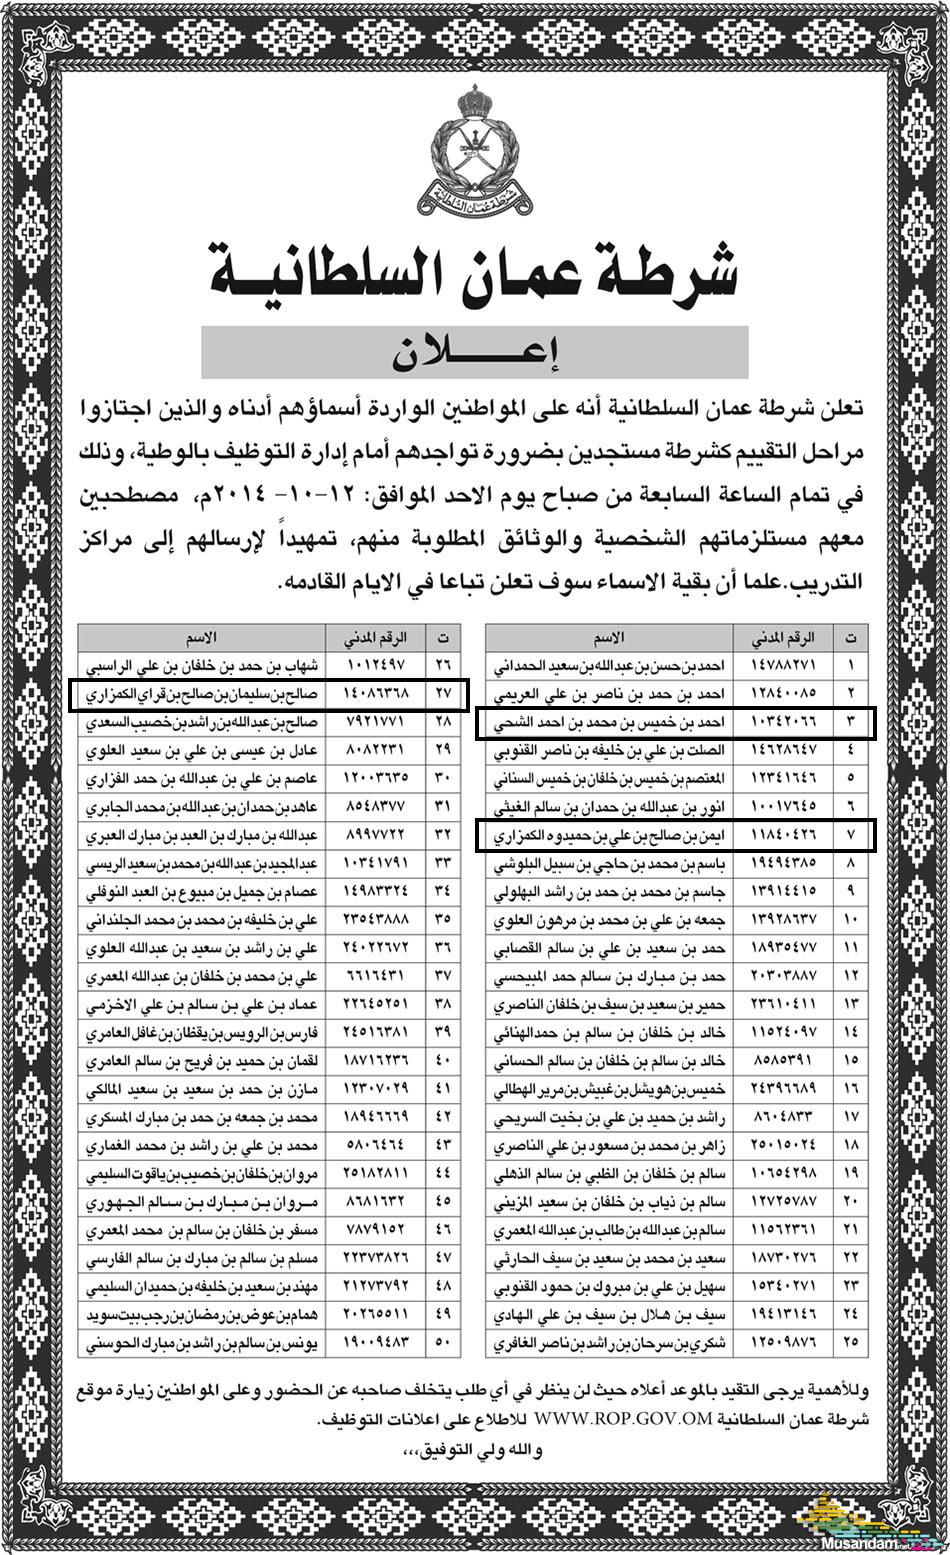 شرطة عمان السلطانية
شرطة عمان السلطانية
إعـــــلان
تعلن شرطة عمان السلطانية أنه على المواطنين الواردة أسماؤهم أدناه والذين اجتازوا
مراحل التقييم كشرطة مستجدين بضرورة تواجدهم أمام إدارة التوظيف بالوطية، وذلك
في تمام الساعة السابعة من صباح يوم الاحد الموافق: ١٢-١٠- ٢٠١٤م، مصطحبين
معهم مستلزماتهم الشخصية والوثائق المطلوبة منهم، تمهيداً لإرسالهم إلى مراكز
التدريب.علما أن بقية الاسماء سوف تعلن تباعا في الايام القادمه.
ت الرقم المدني الاسم
١ ١٤٧٨٨٢٧١ احمد بن حسن بن عبدالله بن سعيد الحمداني
٢ ١٢٨٤٠٠٨٥ احمد بن حمد بن ناصر بن علي العريمي
٣ ١٠٣٤٢٠٦٦ احمد بن خميس بن محمد بن احمد الشحي
٤ ١٤٦٢٨٦٤٧ الصلت بن علي بن خليفه بن ناصر القنوبي
٥ ١٢٣٤١٦٤٦ المعتصم بن خميس بن خلفان بن خميس السناني
٦ ١٠٠١٧٦٤٥ انور بن عبدالله بن حمدان بن سالم الغيثي
٧ ١١٨٤٠٤٢٦ ايمن بن صالح بن علي بن حميدوه الكمزاري
٨ ١٩٤٩٤٣٨٥ باسم بن محمد بن حاجي بن سبيل البلوشي
٩ ١٣٩١٤٤١٥ جاسم بن محمد بن حمد بن راشد البهلولي
١٠ ١٣٩٢٨٦٣٧ جمعه بن علي بن محمد بن مرهون العلوي
١١ ١٨٩٣٥٤٧٧ حمد بن سعيد بن علي بن سالم القصابي
١٢ ٢٠٣٠٣٨٨٧ حمد بن مبارك بن سالم حمد المبيحسي
١٣ ٢٣٦١٠٤١١ حمير بن سعيد بن سيف بن خلفان الناصري
١٤ ١١٥٢٤٠٩٧ خالد بن خلفان بن سالم بن حمدالهنائي
١٥ ٨٥٨٥٣٩١ خالد بن سالم بن خلفان بن سالم الحساني
١٦ ٢٤٣٩٦٦٨٩ خميس بن هويشل بن غبيش بن مرير الهطالي
١٧ ٨٦٠٤٨٣٣ راشد بن حميد بن علي بن بخيت السريحي
١٨ ٢٥٠١٥٠٢٤ زاهر بن محمد بن مسعود بن علي الناصري
١٩ ١٠٦٥٤٢٩٨ سالم بن خلفان بن الظبي بن سالم الذهلي
٢٠ ١٢٧٢٥٧٨٧ سالم بن ذياب بن خلفان بن سعيد المزيني
٢١ ١١٥٦٢٣٦١ سالم بن عبدالله بن طالب بن عبدالله المعمري
٢٢ ١٨٧٣٠٢٧٦ سعيد بن محمد بن سعيد بن سيف الحارثي
٢٣ ١٥٣٤٠٢٧١ سهيل بن علي بن مبروك بن حمود القنوبي
٢٤ ١٩٤١٣١٤٦ سيف بن هلال بن سيف بن علي الهادي
٢٥ ١٢٥٠٩٨٧٦ شكري بن سرحان بن راشد بن ناصر الغافري
ت الرقم المدني الاسم
٢٦ ١٠١٢٤٩٧ شهاب بن حمد بن خلفان بن علي الراسبي
٢٧ ١٤٠٨٦٣٦٨ صالح بن سليمان بن صالح بن قراي الكمزاري
٢٨ ٧٩٢١٧٧١ صالح بن عبدالله بن راشد بن خصيب السعدي
٢٩ ٨٠٨٢٢٣١ عادل بن عيسى بن علي بن سعيد العلوي
٣٠ ١٢٠٠٣٦٣٥ عاصم بن علي بن عبدالله بن حمد الفزاري
٣١ ٨٥٤٨٣٧٧ عاهد بن حمدان بن عبدالله بن محمد الجابري
٣٢ ٨٩٩٧٧٢٢ عبدالله بن مبارك بن العبد بن مبارك العبري
٣٣ ١٠٣٤١٧٩١ عبدالمجيد بن عبدالله بن محمد بن سعيد الريسي
٣٤ ١٤٩٨٣٣٢٤ عصام بن جميل بن مبيوع بن العبد النوفلي
٣٥ ٢٣٥٤٣٨٨٨ علي بن خليفه بن محمد بن محمد الجلنداني
٣٦ ٢٤٠٢٢٦٧٢ علي بن راشد بن سعيد بن عبدالله العلوي
٣٧ ٦٦١٦٤٣١ علي بن محمد بن خلفان بن عبدالله المعمري
٣٨ ٢٢٦٤٥٢٥١ عماد بن علي بن سالم بن علي الاخزمي
٣٩ ٢٤٥١٦٣٨١ فارس بن الرويس بن يقظان بن غافل العامري
٤٠ ١٨٧١٦٢٣٦ لقمان بن حميد بن فريح بن سالم العامري
٤١ ١٢٣٠٧٠٢٩ مازن بن حمد بن سعيد بن سعيد المالكي
٤٢ ١٨٩٤٦٦٦٩ محمد بن جمعه بن حمد بن مبارك المسكري
٤٣ ٥٨٠٦٤٦٤ محمد بن علي بن راشد بن محمد الغماري
٤٤ ٢٥١٨٢٨١١ مروان بن خلفان بن خصيب بن ياقوت السليمي
٤٥ ٨٦٨١٦٣٢ مروان بن مبارك بن سالم الجهوري
٤٦ ٧٨٧٩١٥٢ مسفر بن خلفان بن سالم بن محمد المعمري
٤٧ ٢٢٣٧٣٨٢٦ مسلم بن سالم بن مبارك بن سالم الفارسي
٤٨ ٢١٢٧٣٧٩٢ مهند بن سعيد بن خليفه بن حميدان السليمي
٤٩ ٢٠٢٦٥٥١١ همام بن عوض بن رمضان بن رجب بيت سويد
٥٠ ١٩٠٠٩٤٨٣ يونس بن سالم بن راشد بن مبارك الحوسني
وللأهمية يرجى التقيد بالموعد أعلاه حيث لن ينظر في أي طلب يتخلف صاحبه عن الحضور وعلى المواطنين زيارة موقع
شرطة عمان السلطانية WWW.ROP.GOV.OM للاطلاع على اعلانات التوظيف.
والله ولي التوفيق،،،
Musandam.net